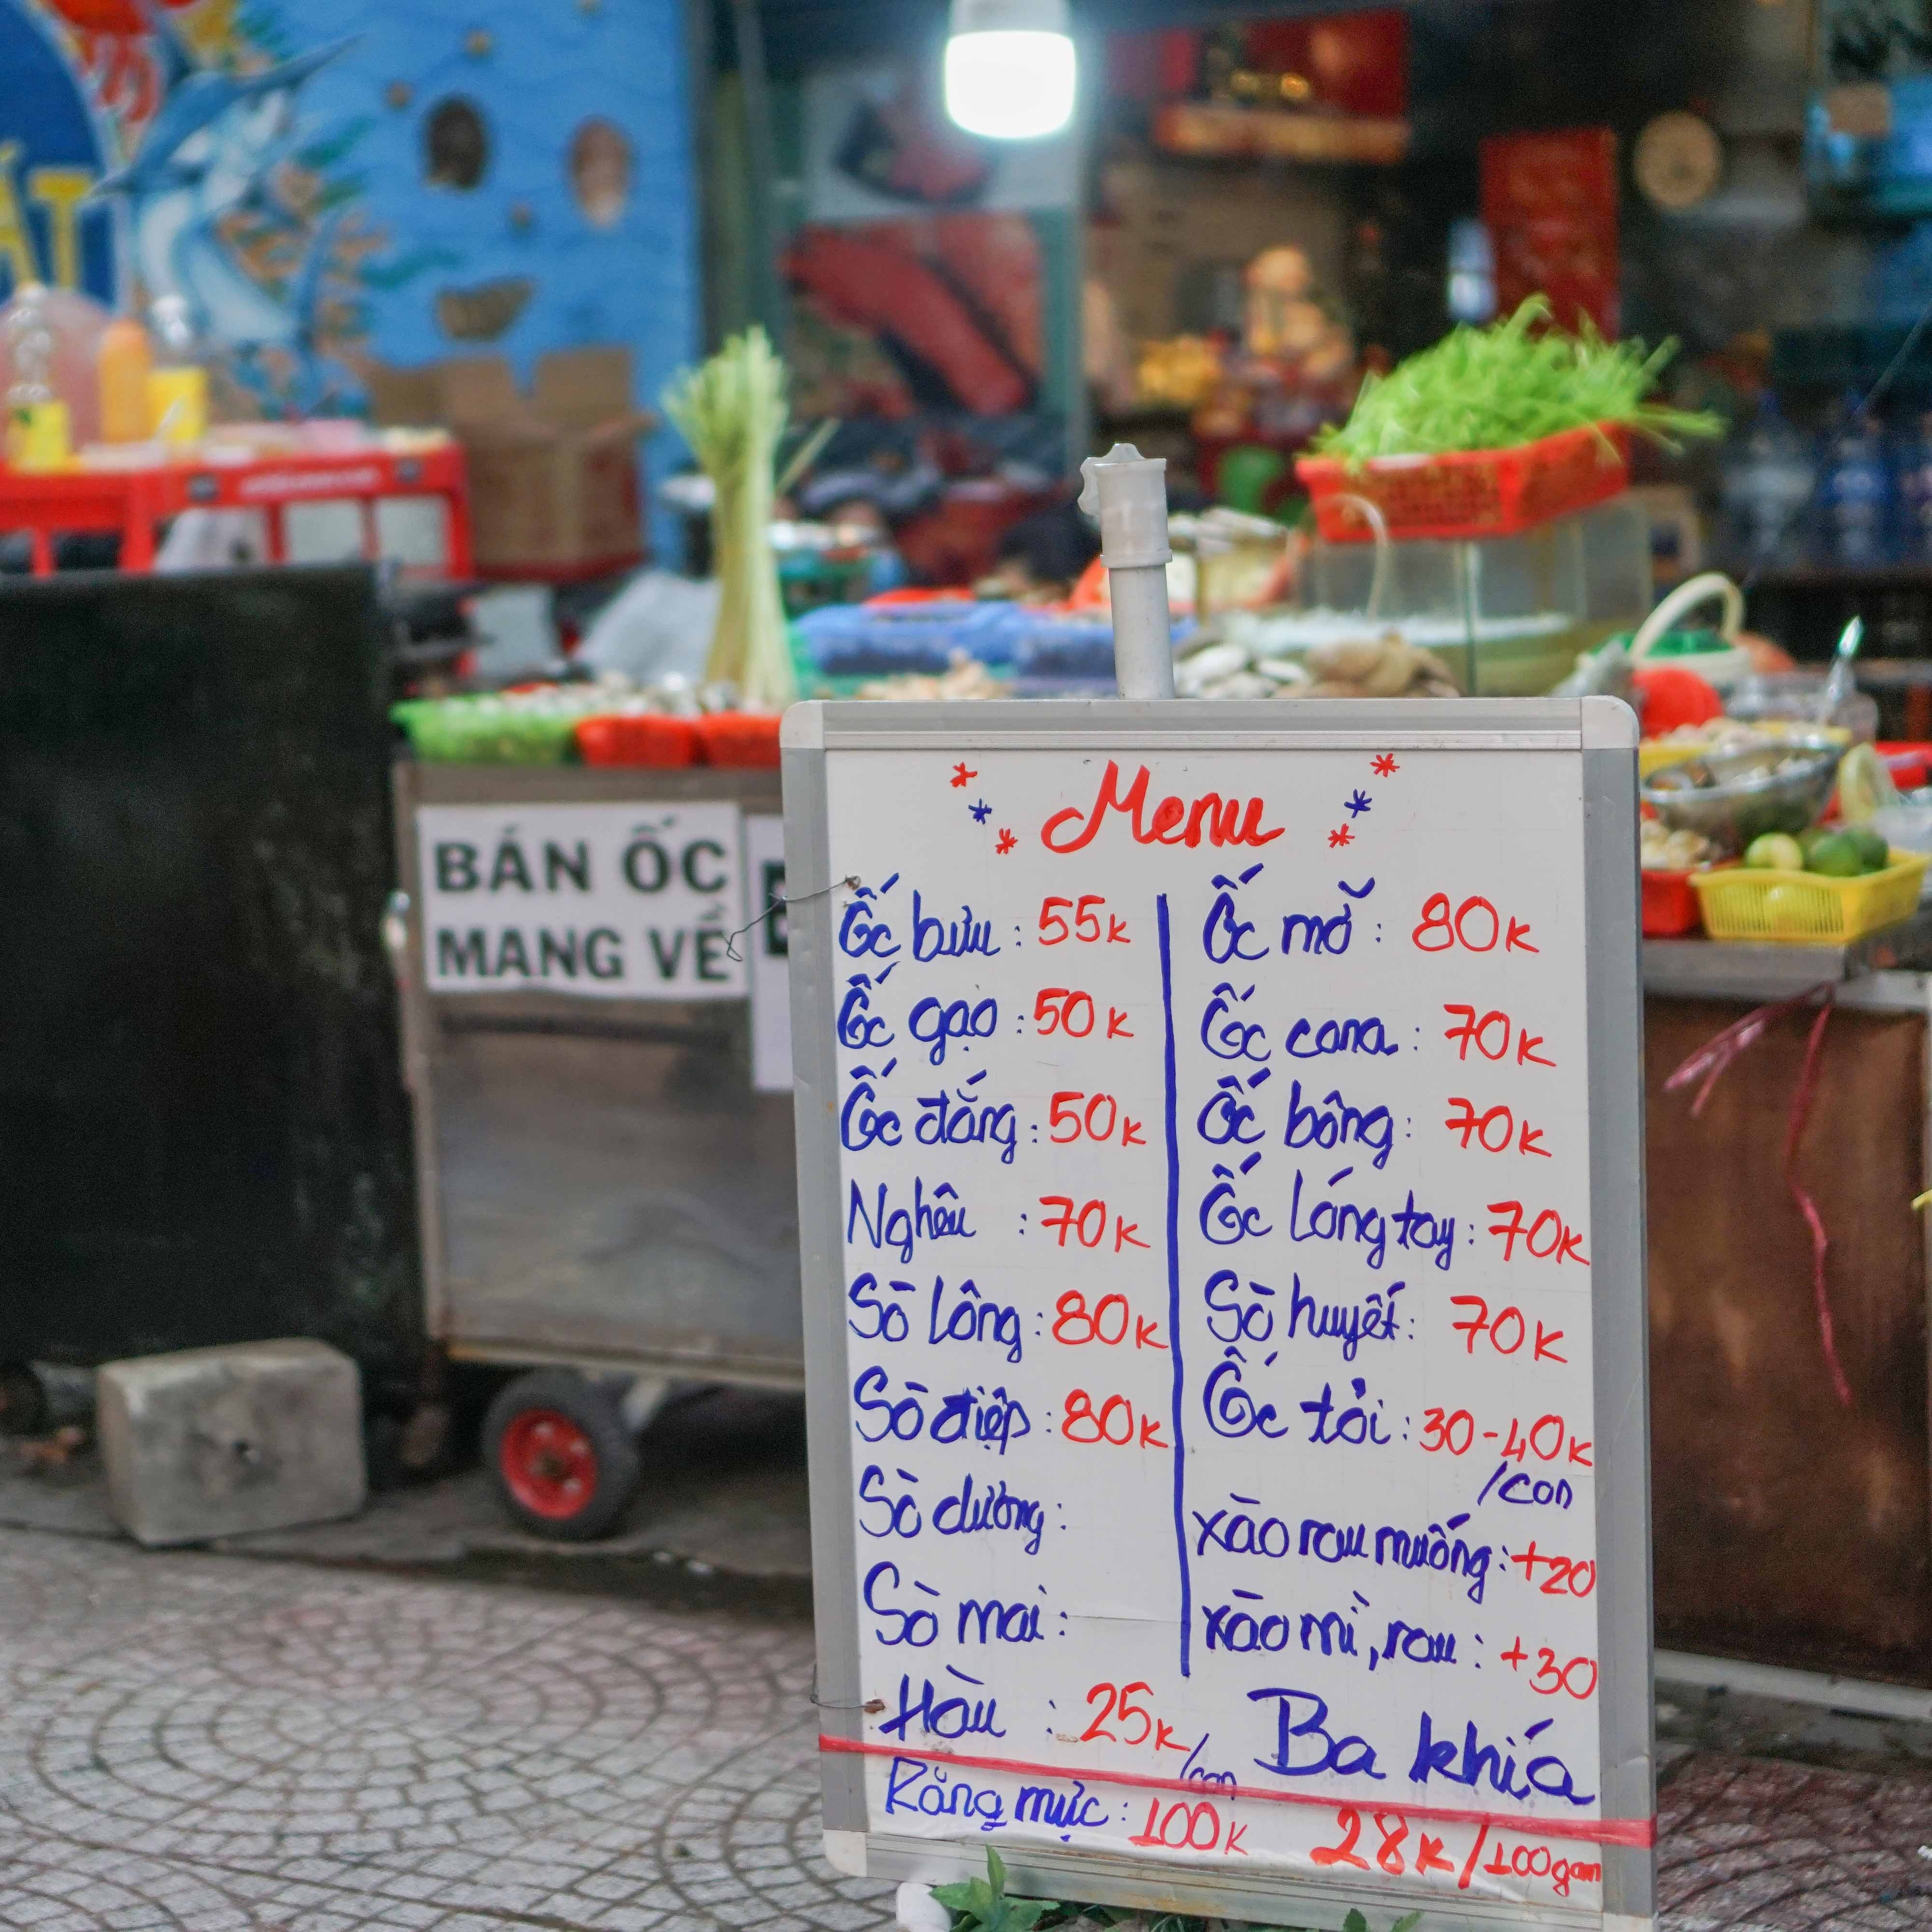 ÁT
BÁN ỐC
MANG VỀ
Menu
Ốc bưu : 55k
Ốc gạo : 50k
Ốc đắng : 50k
Nghêu : 70k
Sò lông : 80k
Sò điệp : 80k
Sò dương :
Sò mai :
Hàu : 25k/con
Răng mực : 100k
Ốc mỡ : 80k
Ốc cana : 70k
Ốc bông : 70k
Ốc lóng tay : 70k
Sò huyết : 70k
Ốc tỏi : 30-40k
/con
xào rau muống : +20
xào mì, rau : +30
Ba khía
28k/100gam